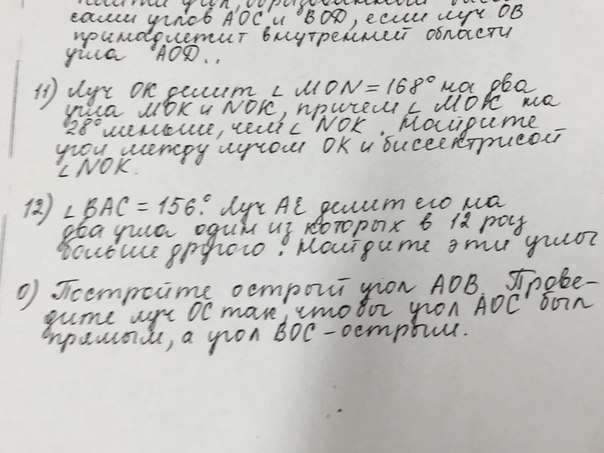 сами углов АОС и ВОД, если луч ОВ
принадлежит внутренней области
угла АОД..
11) Луч ОК делит ∠ МОN = 168° на два
угла МОК и NОК, причем ∠ МОК на
28° меньше, чем ∠ NОК. Найдите
угол между лучом ОК и биссектрисой
∠ NОК.
12) ∠ ВАС = 156°. Луч АЕ делит его на
два угла один из которых в 12 раз
больше другого. Найдите эти углы
0) Постройте острый угол АОВ. Прове-
дите луч ОС так, чтобы угол АОС был
прямым, а угол ВОС - острым.